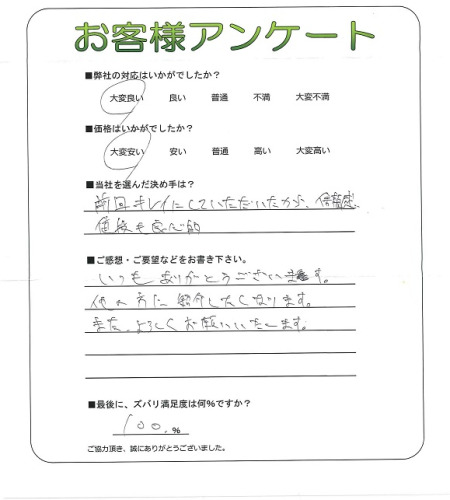 お客様アンケート
■弊社の対応はいかがでしたか?
大変良い 良い 普通 不満 大変不満
■価格はいかがでしたか?
大変安い 安い 普通 高い 大変高い
■当社を選んだ決め手は?
前回キレイにしていただいたから、信頼感
値段も良心的
■ご感想・ご要望などをお書き下さい。
いつもありがとうございます。
他の方に紹介したくなります。
また、よろしくお願いいたします。
■最後に、ズバリ満足度は何%ですか?
100.%
ご協力頂き、誠にありがとうございました。